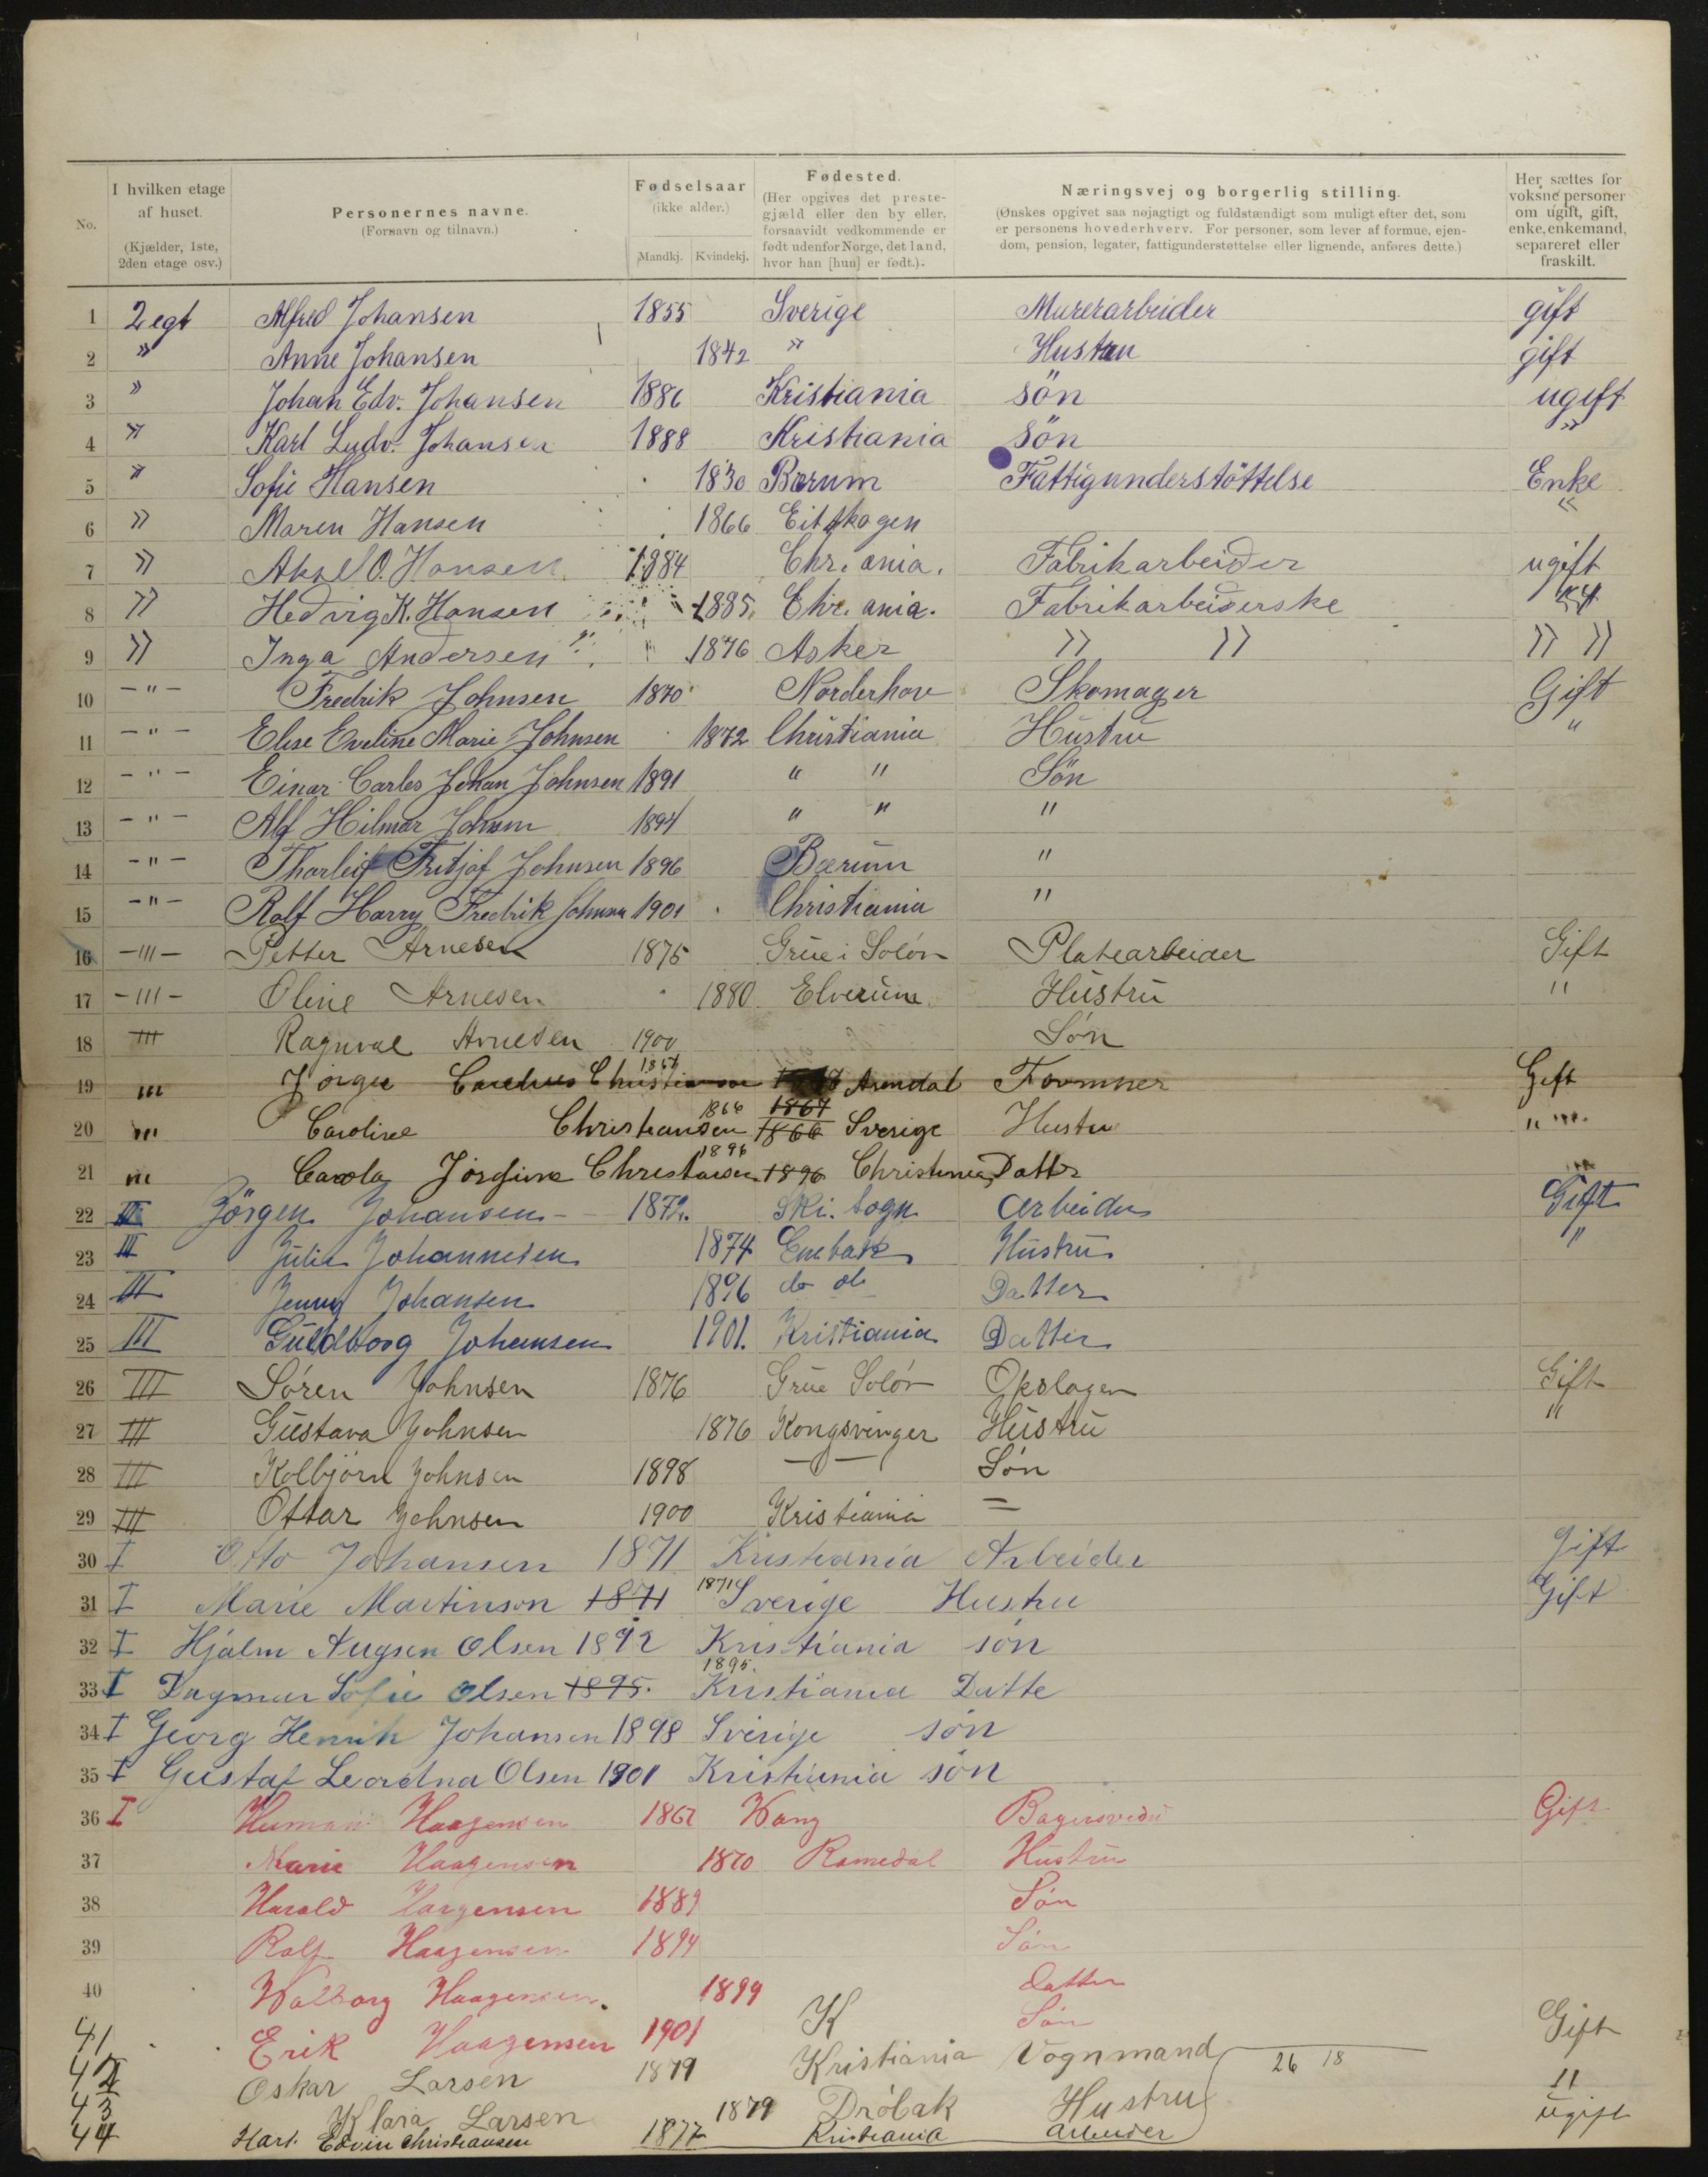 No. | I hvilken etage af huset. (Kjælder, 1ste, 2den etage osv.) | Personernes navne. (Fornavn og tilnavn.) | Fødselsaar (ikke alder.) Mandkj. Kvindekj. | Fødested. (Her opgives det prestegjæld eller den by eller, forsaavidt vedkommende er født udenfor Norge, det land, hvor han [hun] er født.). | Næringsvej og borgerlig stilling. (Ønskes opgivet saa nøjagtigt og fuldstændigt som muligt efter det, som er personens hovederhverv. For personer, som lever af formue, ejendom, pension, legater, fattigunderstøttelse eller lignende, anføres dette.) | Her sættes for voksne personer om ugift, gift, enke, enkemand, separeret eller fraskilt.
1 2 egt Alfred Johansen 1855 Sverige Murerarbeider gift
2 " Anne Johansen 1842 " Hustru gift
3 " Johan Edv. Johansen 1886 Kristiania sön ugift
4 " Karl Ludv. Johansen 1888 Kristiania sön "
5 " Sofie Hansen 1830 Bærum Fattigunderstöttelse Enke
6 " Maren Hansen 1866 Eidskogen "
7 " Aksel O. Hansen 1884 Chr.ania. Fabrikarbeider ugift
8 " Hedvig K. Hansen 1885 Chr.ania. Fabrikarbeiderske
9 " Inga Andersen 1876 Asker " " " "
10 - " - Fredrik Johnsen 1870 Norderhov Skomager Gift
11 - " - Elise Eveline Marie Johnsen 1872 Christiania Hustru "
12 - " - Einar Carlos Johan Johnsen 1891 " " Sön
13 - " - Alf Hilmar Johnsen 1894 " " "
14 - " - Tharleif Fritjof Johnsen 1896 Bærum "
15 - " - Rolf Harry Fredrik Johnsen 1901 Christiania "
16 - III - Petter Arnesen 1875 Grue i Solör Platearbeider Gift
17 - III - Oline Arnesen 1880 Elverum Hustru "
18 III Ragnval Arnesen 1900 Søn
19 III Jørgen Christiansen Arendal Formner Gift
20 III Caroline Christiansen 1866 1867 1866 Sverige Hustru "
21 III Carola Jørgine Christiansen 1896 1896 Christiania Datter
22 III Jörgen Johansen 1872. Ski. sogn Arbeider Gift
23 III Julie Johannesen 1874 Enebak Hustru "
24 III Jenny Johansen 1896 do do Datter
25 III Guldborg Johansen 1901. Kristiania Datter
26 III Sören Johnsen 1876 Grue Solör Opslagen Gift
27 III Gustava Johnsen 1876 Kongsvinger Hustru "
28 III Kolbjörn Johnsen 1898 - " - Sön
29 III Ottar Johnsen 1900 Kristiania =
30 I Otto Johansen 1871 Kristiania Arbeider Gift
31 I Marie Martinson 1871 1871 Sverige Hustru Gift
32 I Hjalm Augsen Olsen 1892 Kristiania sön
33 I Dagmar Sofie Olsen 1895. 1895. Kristiania Datte
34 I Georg Henrik Johansen 1898 Sverige sön
35 I Gustaf Leordna Olsen 1901 Kristiania sön
36 I Herman Haagensen 1867 Wang Bagersvend Gift
37 Marie Haagensen 1870 Romedal Hustru
38 Harald Haagensen 1889 Sön
39 Rolf Haagensen 1894 Sön
40 Walborg Haagensen. 1899 Datter
41 Erik Haagensen 1901 K Sön
42 Oskar Larsen 1879 Kristiania Vognmand 26 18 Gift
43 Klara Larsen 1879 Dröbak Hustru "
44 Karl Edvin Christiansen 1877 Kristiania Arbeider ugift